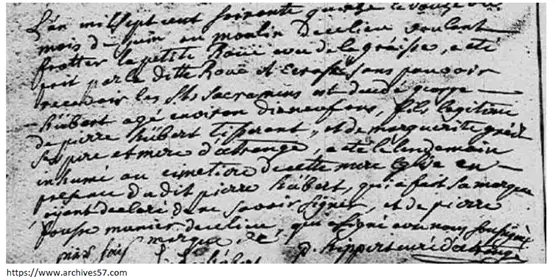 L'an mil sept cent soixante quatorze le douze du
mois de juin au moulin de ce lieu voulant
frotter la petite Rouë avec de la graisse, a eté
prit par la ditte Rouë et Ecrasé sans pouvoir
recevoir les Sts Sacremens est decedé george
hubert agé environ dix neuf ans, fils legitime
de pierre hubert tisserant, et de marguerite
ses pere et mere d'atrange, a eté le lendemain
inhumé au cimetiere de cette mere Eglise en
presence dudit pierre hubert, qui a fait sa marque
ayant declaré de ne savoir signer, et de pierre
meunier de ce lieu, qui a signé avec nous soussigné
marque de
https://www.archives57.com